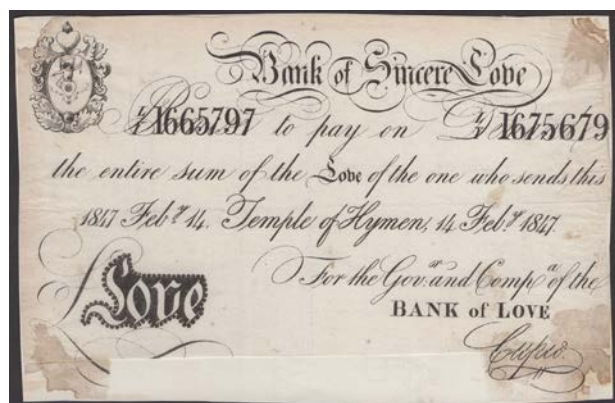 Bank of Sincere Love
I 1665797 to pay on I 1675679
the entire sum of the Love of the one who sends this
1847 Feby 14. Temple of Hymen, 14 Feby 1847.
For the Govr and Compa of the
BANK of LOVE
Love
Cupid.